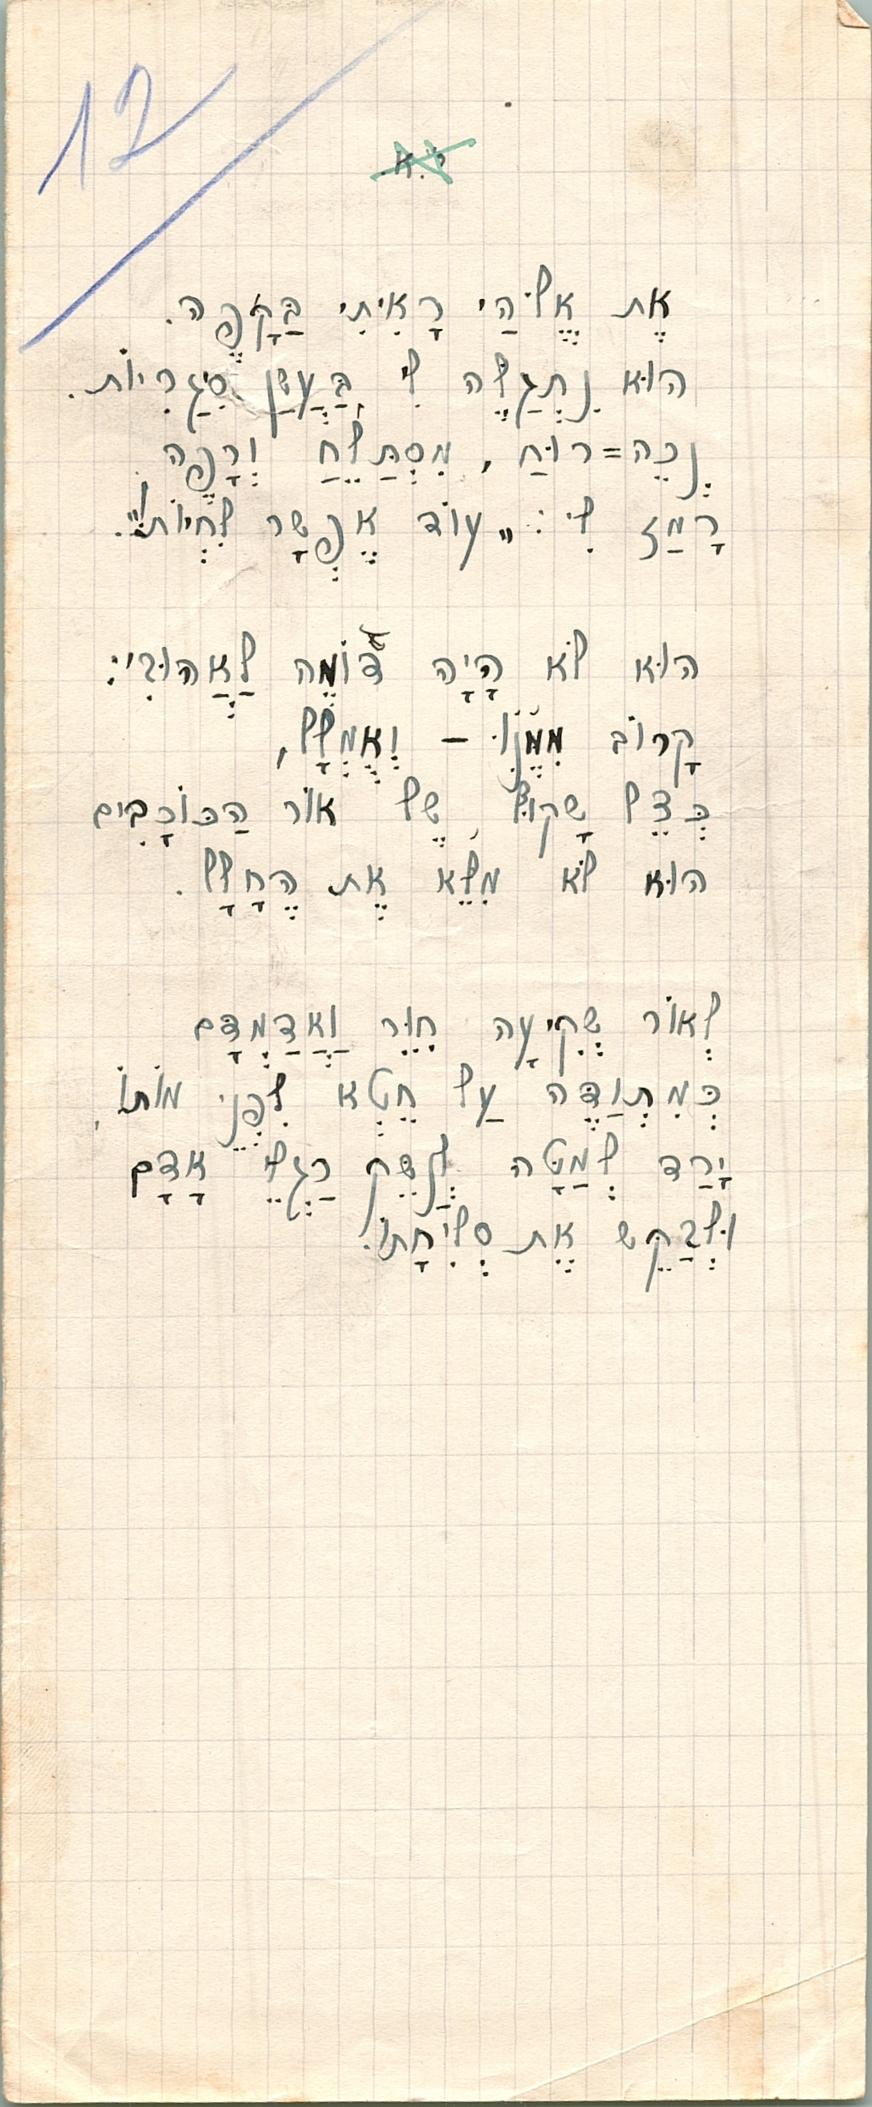 12
אֶת אֱלֹהַי רָאִיתִי בַּקָפֶה.
הוּא נִתְגַלֶה לִי בַּעֲשַן סִיגַרִיוֹת.
נְכֵה=רוּחַ, מִסְתַלֵחַ וְרָפֶה
רָמַז לִי: „עוֹד אֶפְשָר לִחְיוֹת!".
הוּא לֹא הָיָה דּוֹמֶה לַאֲהוּבִי:
קָרוֹב מִמֶנוּ – וַאֲמְלָל,
כְּצֵל שָקוּף שֶל אוֹר הַכּוֹכָבִים
הוּא לֹא מִלֵא אֶת הֶחָלָל.
לְאוֹר שְקִיעָה חִוֵר וַאֲדַמְדָּם
כְּמִתְוַדֶּה עַל חֵטְא לִפְנֵי מוֹתוֹ,
יָרַד לְמַטָה לְנַשֵק רַגְלֵי אָדָם
וּלְבַקֵש אֶת סְלִיחָתוֹ.